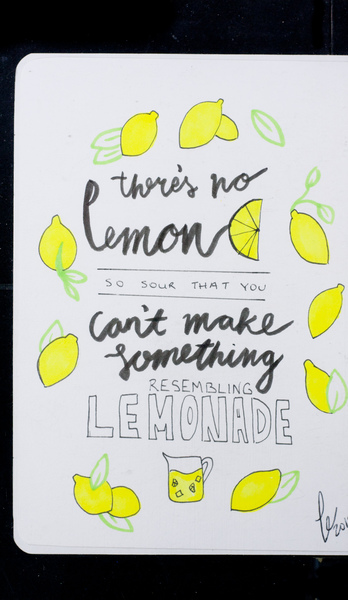 there's no
lemon
SO SOUR THAT YOU
can't make
something
RESEMBLING
LEMONADE